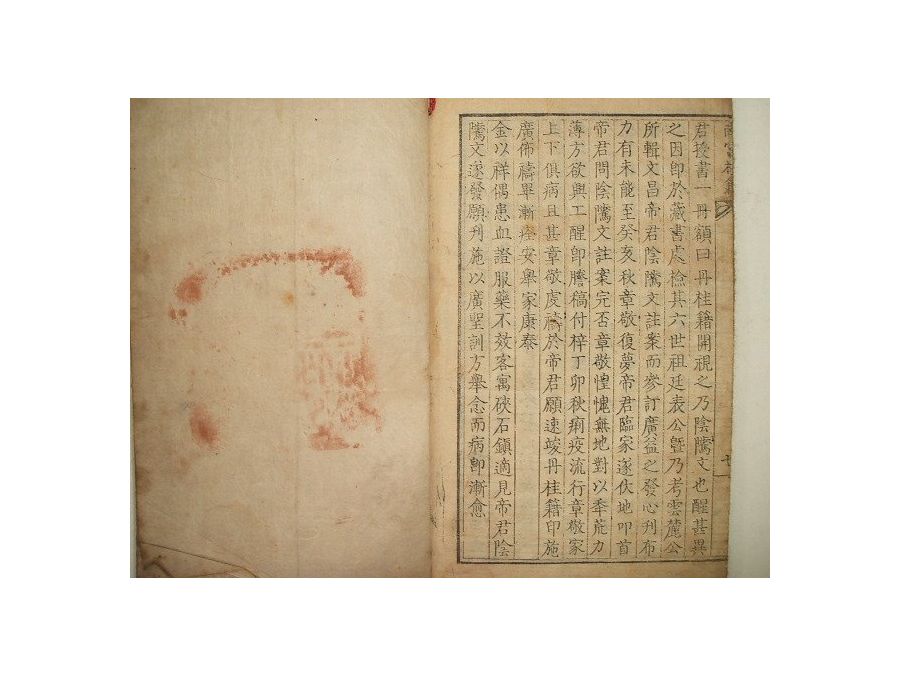 君授書一冊額曰丹桂籍開視之乃陰騭文也醒甚異
之因卽於藏書處檢其六世祖廷表公曁乃考雲麓公
所輯文昌帝君陰騭文註案而參訂廣益之發心刋布
力有未能至癸亥秋章敬復夢帝君臨家遂伏地叩首
帝君問陰騭文註案完否章敬惶愧無地對以奉茺力
薄方欲興工醒卽謄稿付梓丁卯秋痢疫流行章敬家
上下俱病且甚章敬虔禱於帝君願速竣丹桂籍印施
廣佈禱畢漸痊安舉家康泰
金以祥偶患血證服藥不效客寓硤石鎭適見帝君陰
騭文遂發願刋施以廣聖訓方舉念而病卽漸愈